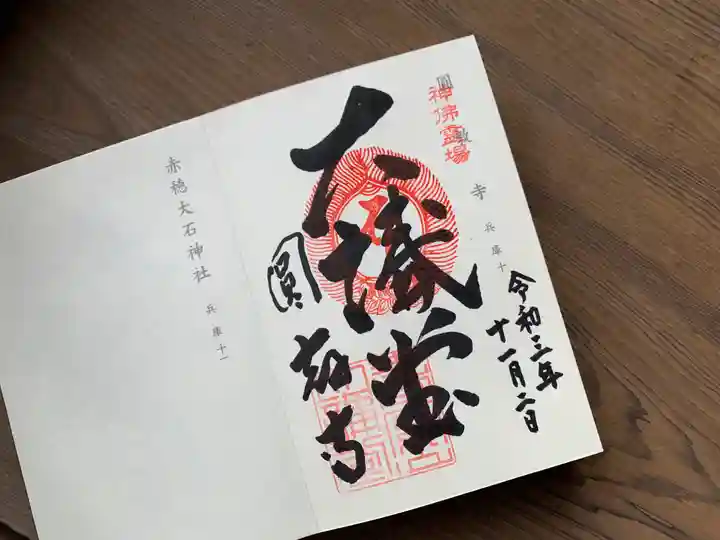 圓教寺 兵庫十
神佛霊場
令和三年
十一月二日
大講堂
圓教寺
赤穂大石神社 兵庫十一